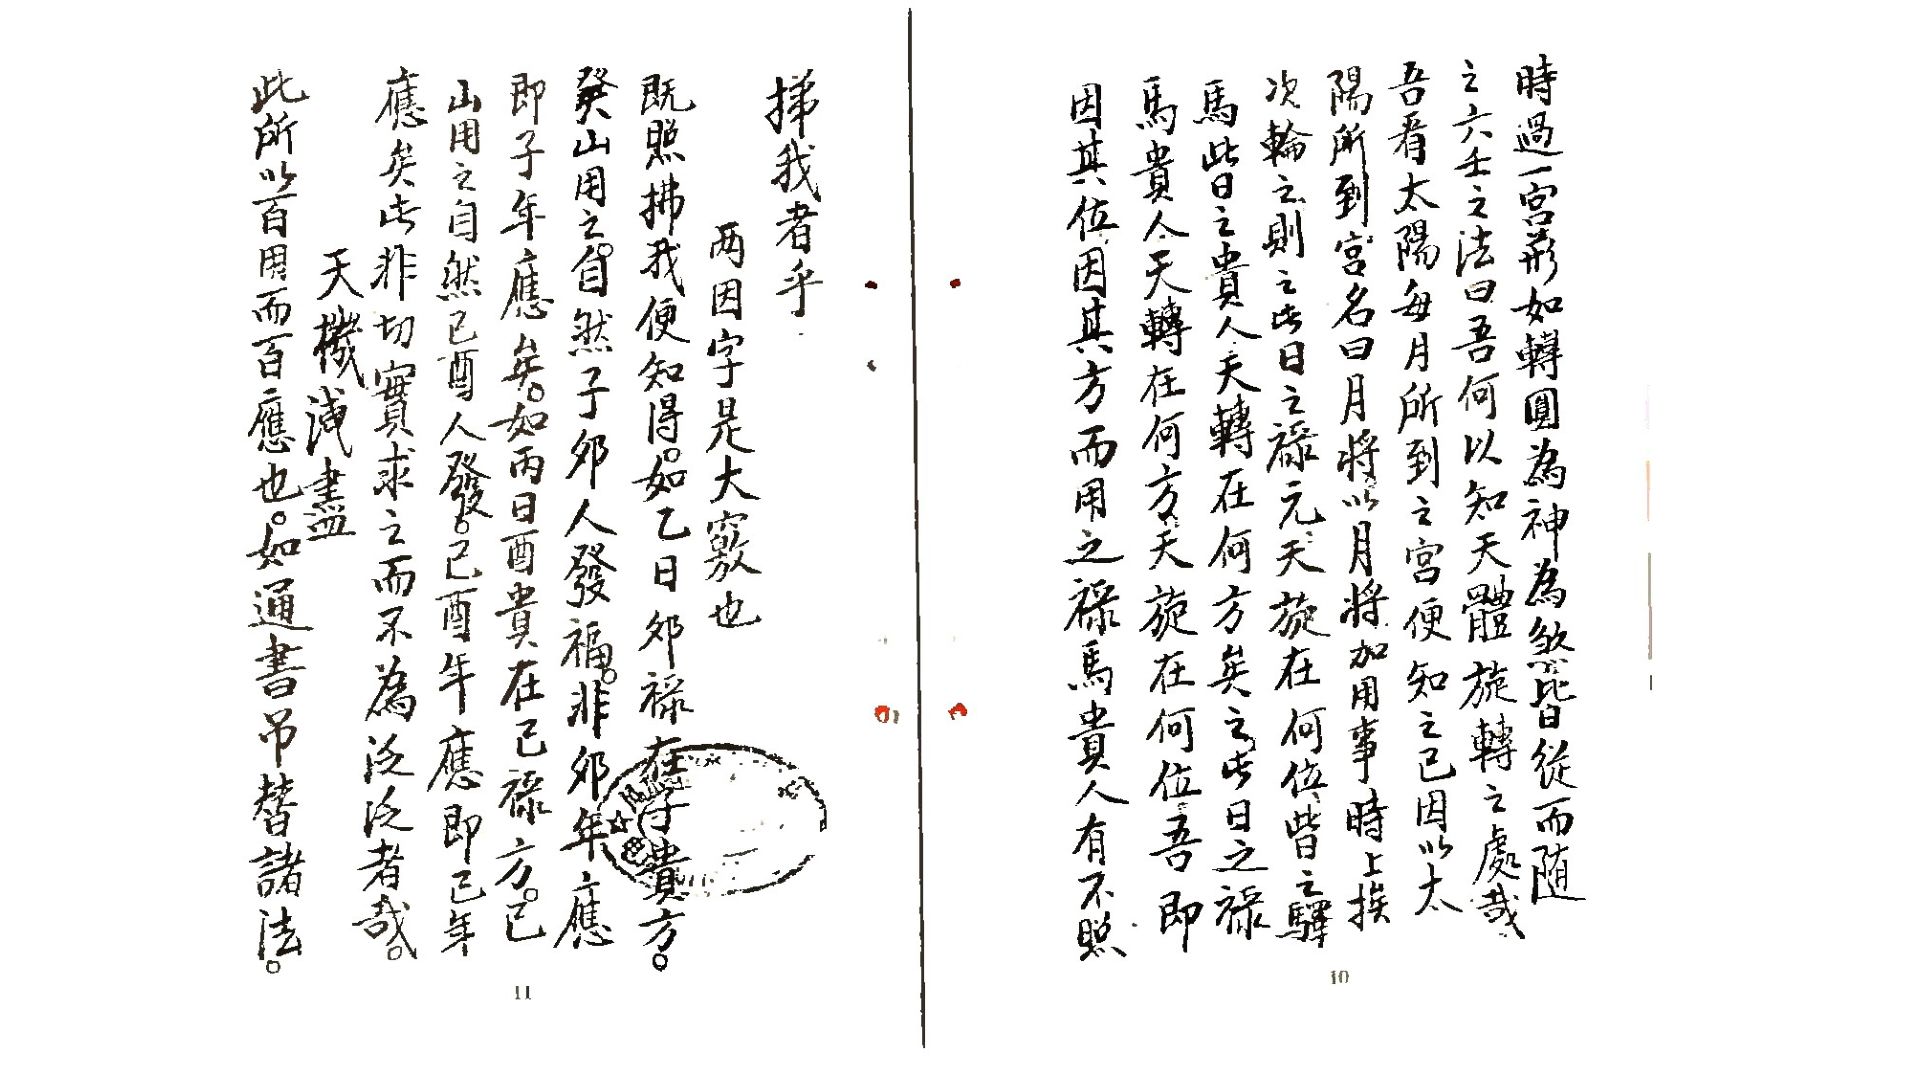 時過一宮形如轉圓為神為煞皆從而随
之六壬之法曰吾何以知天體旋轉之處哉
吾看太陽每月所到之宮便知之已因以太
陽所到宮名曰月將以月將加用事時上挨
次輪之則之此日之祿元天旋在何位皆之驛
馬此日之貴人天轉在何方矣之此日之祿
馬貴人天轉在何方天旋在何位吾即
因其位因其方而用之祿馬貴人有不照
10
掃我者乎
两因字是大竅也
既照拂我便知得。如乙日邜祿在子貴方。
癸山用之。自然子邜人發福。非邜年應
即子年應矣。如丙日酉貴在巳祿方。巳
山用之自然已酉人發。已酉年應即已年
應矣此非切實求之而不為泛泛者哉。
天機洩盡
此所以百用而百應也。如通書吊替諸法。
11